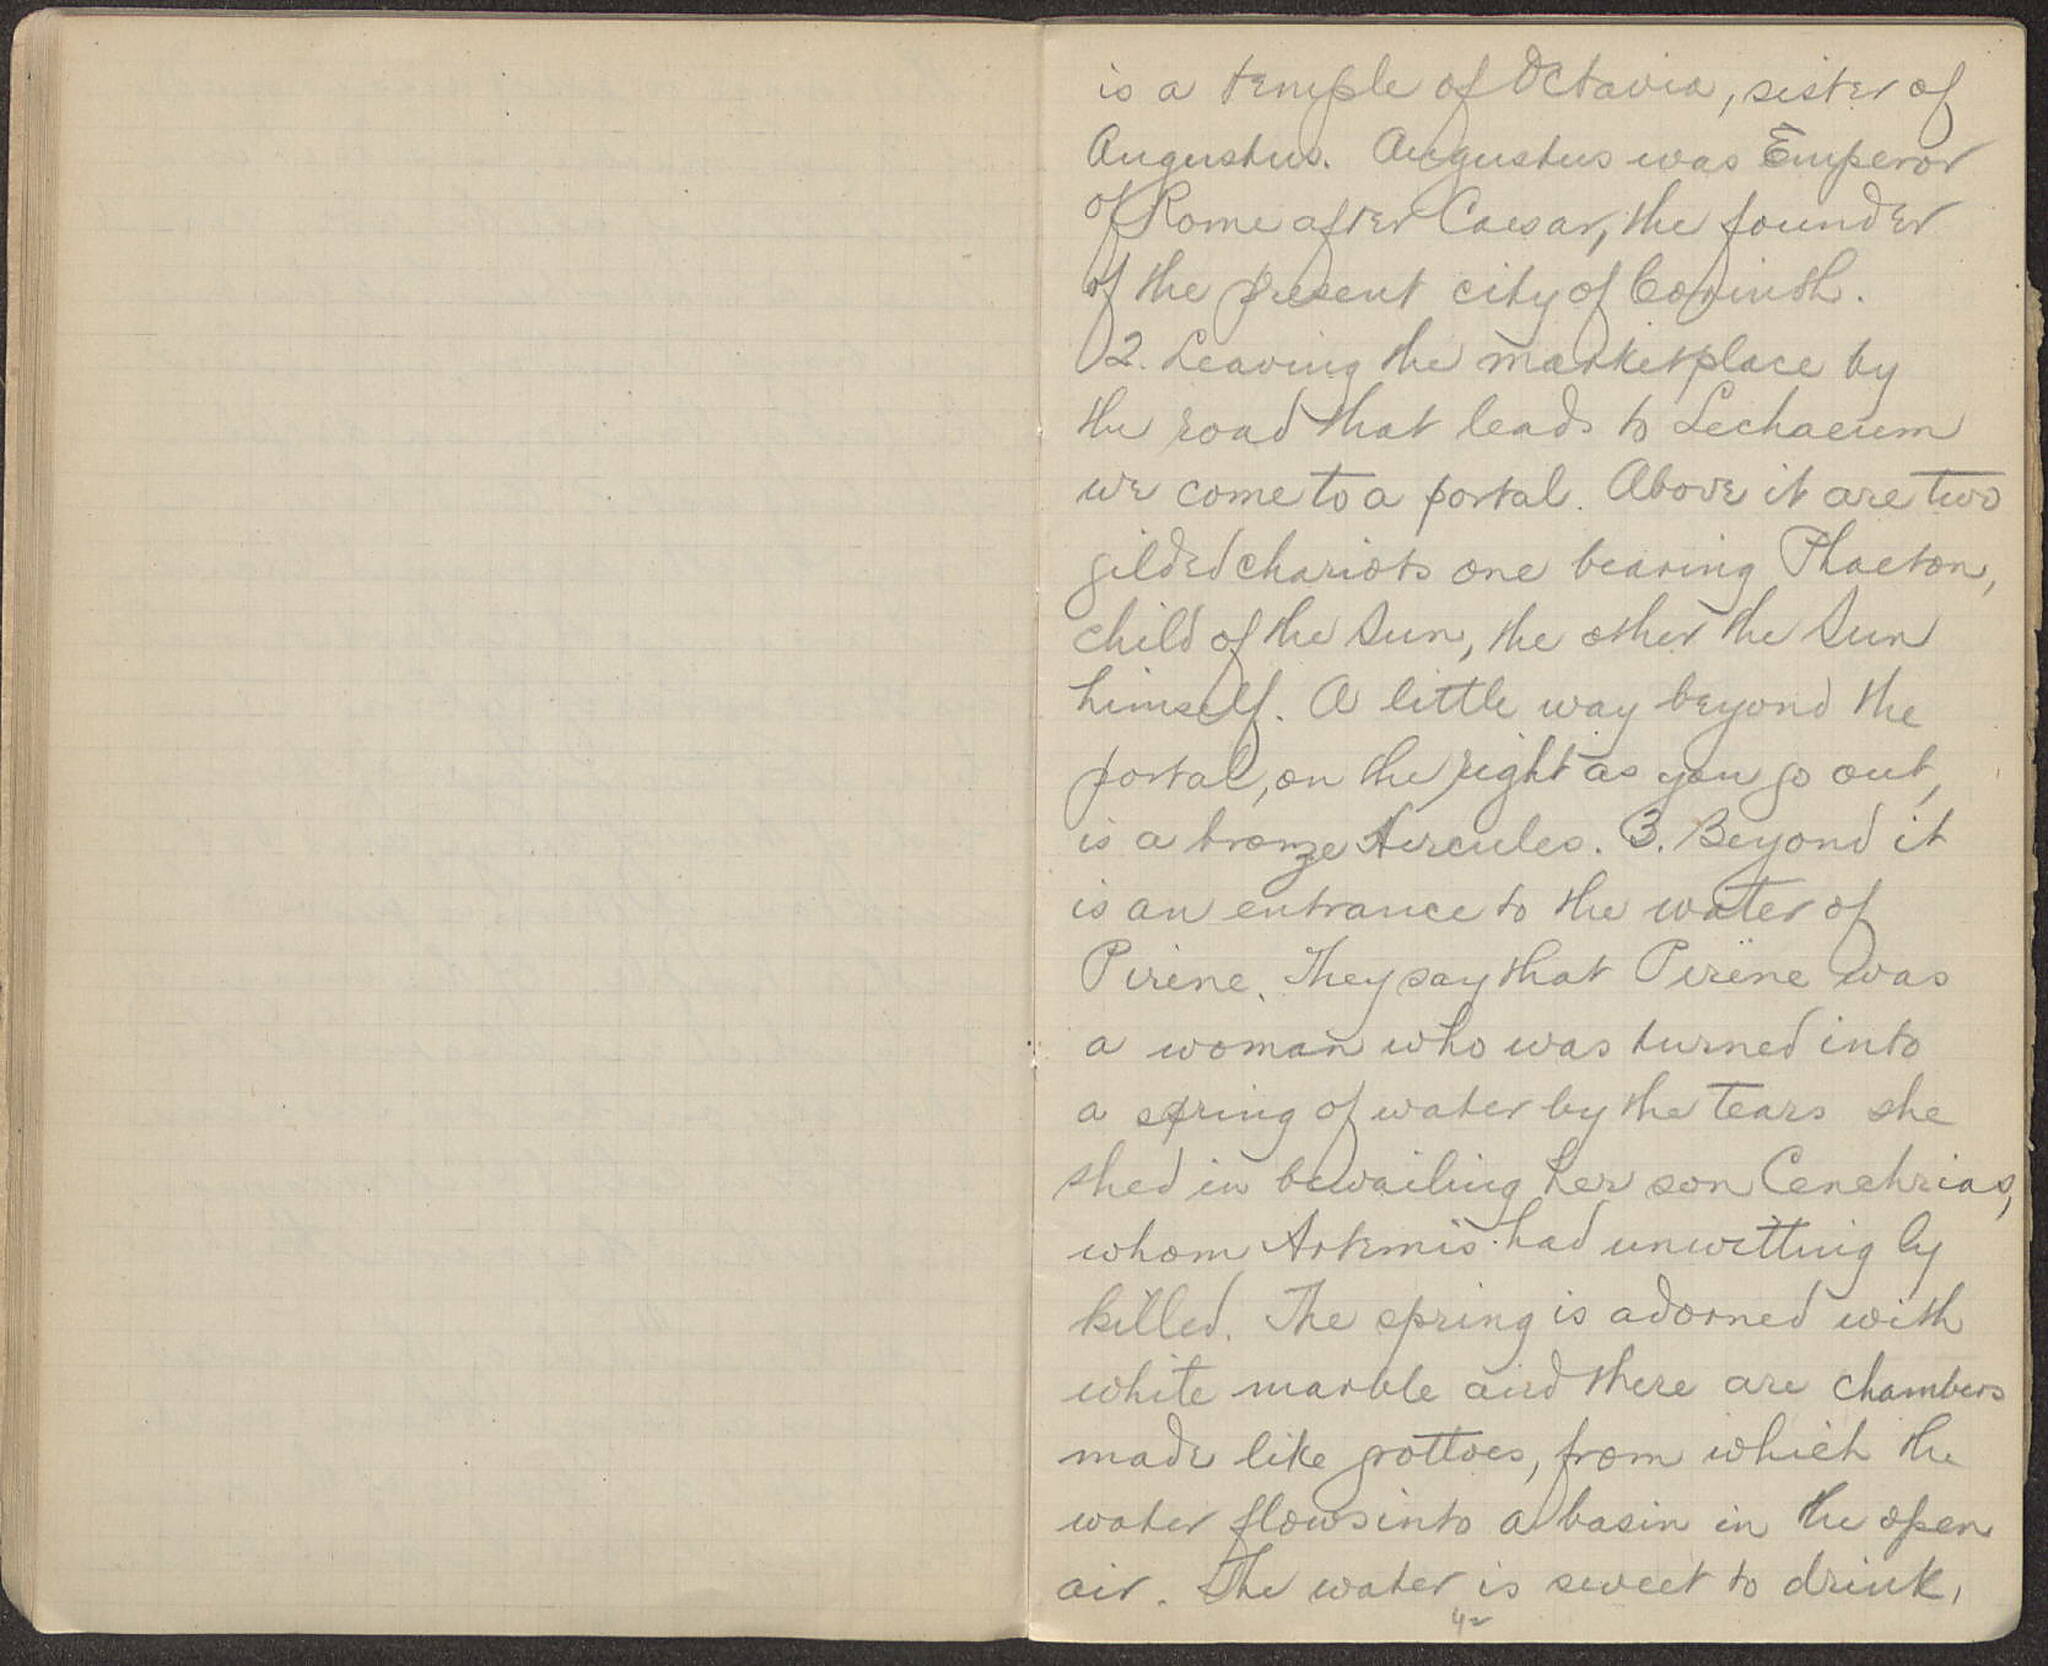 is a temple of Octavia, sister of
Augustus. Augustus was Emperor
of Rome after Caesar, the founder
of the present city of Corinth.
2. Leaving the marketplace by
the road that leads to Lechaeum
we come to a portal. Above it are two
gilded chariots one bearing Phaeton,
child of the Sun, the other the Sun
himself. A little way beyond the
portal, on the right as you go out,
is a bronze Hercules. 3. Beyond it
is an entrance to the water of
Pirene. They say that Pirene was
a woman who was turned into
a spring of water by the tears she
shed in bewailing her son Cenchrias,
whom Artemis had unwittingly
killed. The spring is adorned with
white marble and there are chambers
made like grottoes, from which the
water flows into a basin in the open
air. The water is sweet to drink,
42